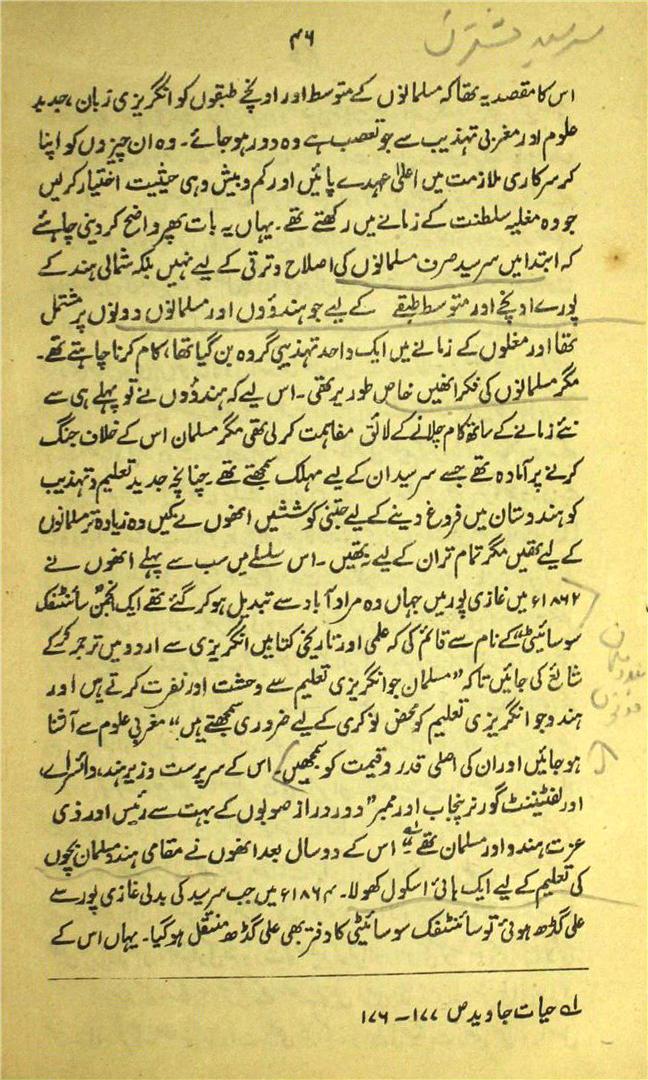 ۴۶
سرسید مشترک
اس کا مقصد یہ تھا کہ مسلمانوں کے متوسط اور اونچے طبقوں کو انگریزی زبان، جدید
علوم اور مغربی تہذیب سے جو تعصب ہے وہ دور ہو جائے۔ وہ ان چیزوں کو اپنا
کر سرکاری ملازمت میں اعلیٰ عہدے پائیں اور کم و بیش وہی حیثیت اختیار کرلیں
جو وہ مغلیہ سلطنت کے زمانے میں رکھتے تھے۔ یہاں یہ بات پھر واضح کر دینی چاہئے
کہ ابتدا میں سرسید صرف مسلمانوں کی اصلاح و ترقی کے لیے نہیں بلکہ شمالی ہند کے
پورے اونچے اور متوسط طبقے کے لیے جو ہندوؤں اور مسلمانوں دونوں پر مشتمل
تھا اور مغلوں کے زمانے میں ایک واحد تہذیبی گروہ بن گیا تھا، کام کرنا چاہتے تھے۔
مگر مسلمانوں کی فکر انھیں خاص طور پر تھی۔ اس لیے کہ ہندوؤں نے تو پہلے ہی سے
نئے زمانے کے ساتھ کام چلانے کے لائق مفاہمت کر لی تھی مگر مسلمان اس کے خلاف جنگ
کرنے پر آمادہ تھے جسے سرسید ان کے لیے مہلک سمجھتے تھے۔ چنانچہ جدید تعلیم و تہذیب
کو ہندوستان میں فروغ دینے کے لیے جتنی کوششیں انھوں نے کیں وہ زیادہ تر مسلمانوں
کے لیے تھیں مگر تمام تر ان کے لیے نہ تھیں۔ اس سلسلے میں سب سے پہلے انھوں نے
۱۸۶۲ء میں غازی پور میں جہاں وہ مراد آباد سے تبدیل ہو کر گئے تھے ایک انجمن "سائنٹفک
سوسائیٹی" کے نام سے قائم کی کہ علمی اور تاریخی کتابیں انگریزی سے اردو میں ترجمہ کر کے
شائع کی جائیں تاکہ "مسلمان جو انگریزی تعلیم سے وحشت اور نفرت کرتے ہیں اور
ہندو جو انگریزی تعلیم کو محض نوکری کے لیے ضروری سمجھتے ہیں" مغربی علوم سے آشنا
ہو جائیں اور ان کی اصلی قدر و قیمت کو سمجھیں۔ اس کے سرپرست وزیر ہند، وائسرائے،
اور لفٹیننٹ گورنر پنجاب اور ممبر "دور دراز صوبوں کے بہت سے رئیس اور ذی
عزت ہندو اور مسلمان تھے"۔؂۱ اس کے دو سال بعد انھوں نے مقامی ہندو مسلمان بچوں
کی تعلیم کے لیے ایک ہائی اسکول کھولا۔ ۱۸۶۴ء میں جب سرسید کی بدلی غازی پور سے
علی گڈھ ہوئی تو سائنٹفک سوسائیٹی کا دفتر بھی علی گڈھ منتقل ہو گیا۔ یہاں اس کے
؂۱ حیات جاوید ص ۱۷۷ - ۱۷۶